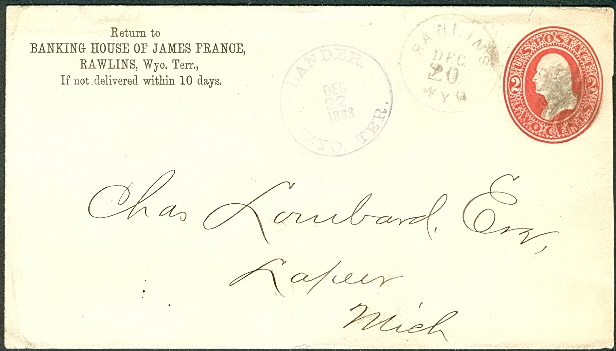 Return to
BANKING HOUSE OF JAMES FRANCE,
RAWLINS, Wyo. Terr.,
If not delivered within 10 days.
LANDER,
DEC
22
1883
WYO TER.
RAWLINS
DEC
20
WYO
U.S. POSTAGE
TWO CENTS
2
2
Chas Lombard, Esq,
Lapeer
Mich